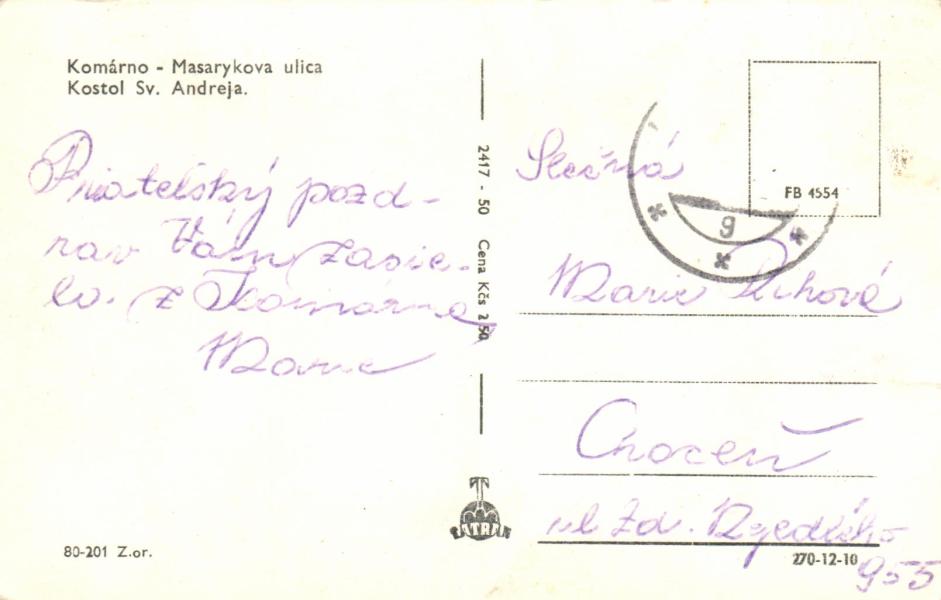 Komárno - Masarykova ulica
Kostol Sv. Andreja.
Priatelský pozd-
rav Vám zasie-
la. z Komárna
Marie
80-201 Z.or.
2417 - 50 Cena Kčs 2.50
TATRAN
FB 4554
9
Slečná
Marie Řihová
Choceň
ul Zd. Nejedlého
270-12-10
955